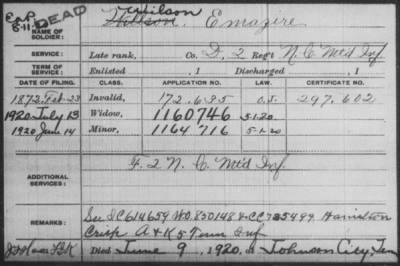 DEAD
Wilson
NAME OF SOLDIER: Emagire
SERVICE: Late rank, Co. D, 2 Reg't N.C. Mtd Inf.
TERM OF SERVICE: Enlisted , 1 Discharged , 1
DATE OF FILING. CLASS. APPLICATION NO. LAW. CERTIFICATE NO.
1872 Feb-23 Invalid, 172.685 O.S. 297.602
1920 July 13 Widow, 1160746 5-1-20
1920 June 14 Minor, 1164716 5-1-20
ADDITIONAL SERVICES: F. 2 N. C. Mtd Inf.
REMARKS: See SC614659 WO.830148 & CC785499 Hamilton
Crisp A & K 5 Tenn Inf
Died June 9, 1920, at Johnson City, Tenn